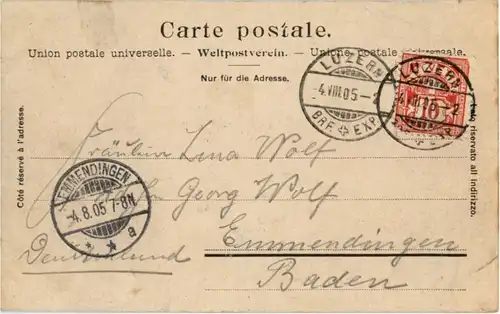 Carte postale.
Union postale universelle. — Weltpostverein. — Unione postale universale.
Nur für die Adresse.
Côté réservé à l'adresse.
Lato riservato all indirizzo.
LUZERN
-4.VIII.05-2
BRF. EXP.
LUZERN
-4.VIII.05-2
10
EMMENDINGEN
-4.8.05.7-8N
* * a
Fräulein Lina Wolf
Georg Wolf
Emmendingen
Deutschland
Baden